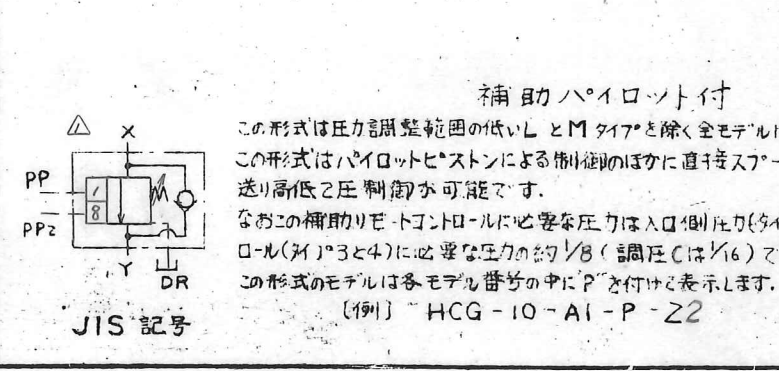 補助パイロット付
この形式は圧力調整範囲の低いLとMタイプを除く全モデルに
この形式はパイロットピストンによる制御のほかに直接スプー
送り高低2圧制御が可能です.
なおこの補助リモートコントロールに必要な圧力は入口側圧力(タイ
ロール(タイプ3と4)に必要な圧力の約1/8(調圧Cは1/16)で
この形式のモデルは各モデル番号の中に"P"を付けて表示します.
[例] HCG-10-A1-P-22
X
PP
1
8
PP2
Y
DR
JIS 記号